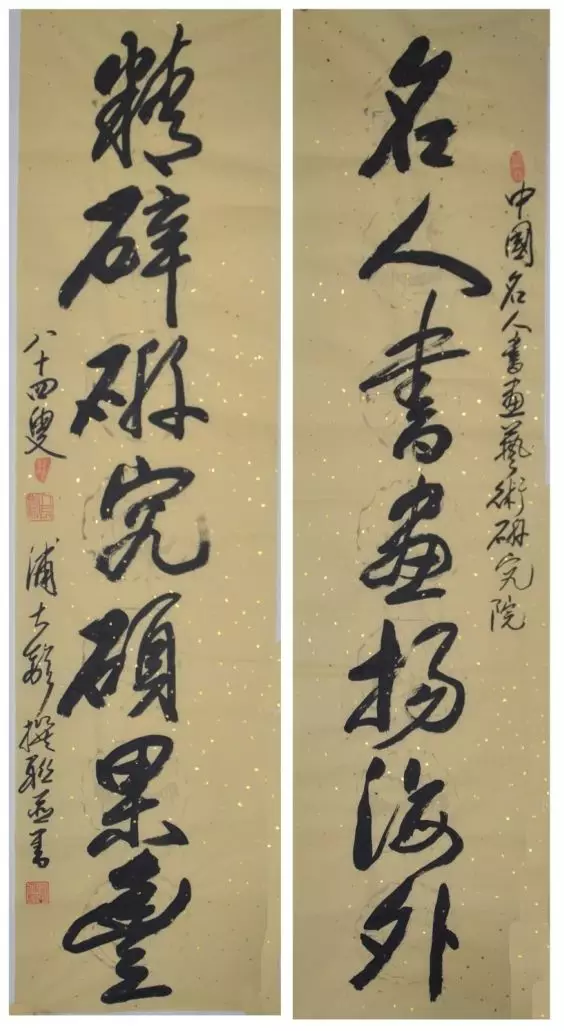 中國名人書畫藝術研究院
名人書畫揚海外
精辟研究碩果豐
八十四叟
浦撰聯並書